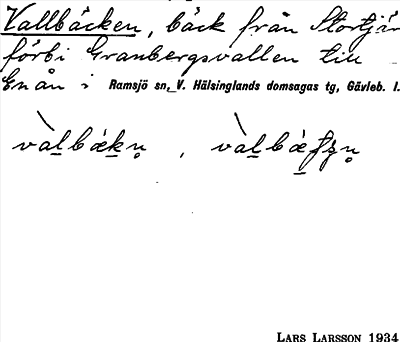 Vallbäcken, bäck från Stortjär
förbi Granbergsvallen till
Enån i Ramsjö sn, V. Hälsinglands domsagas tg, Gävleb. l.
LARS LARSSON 1934